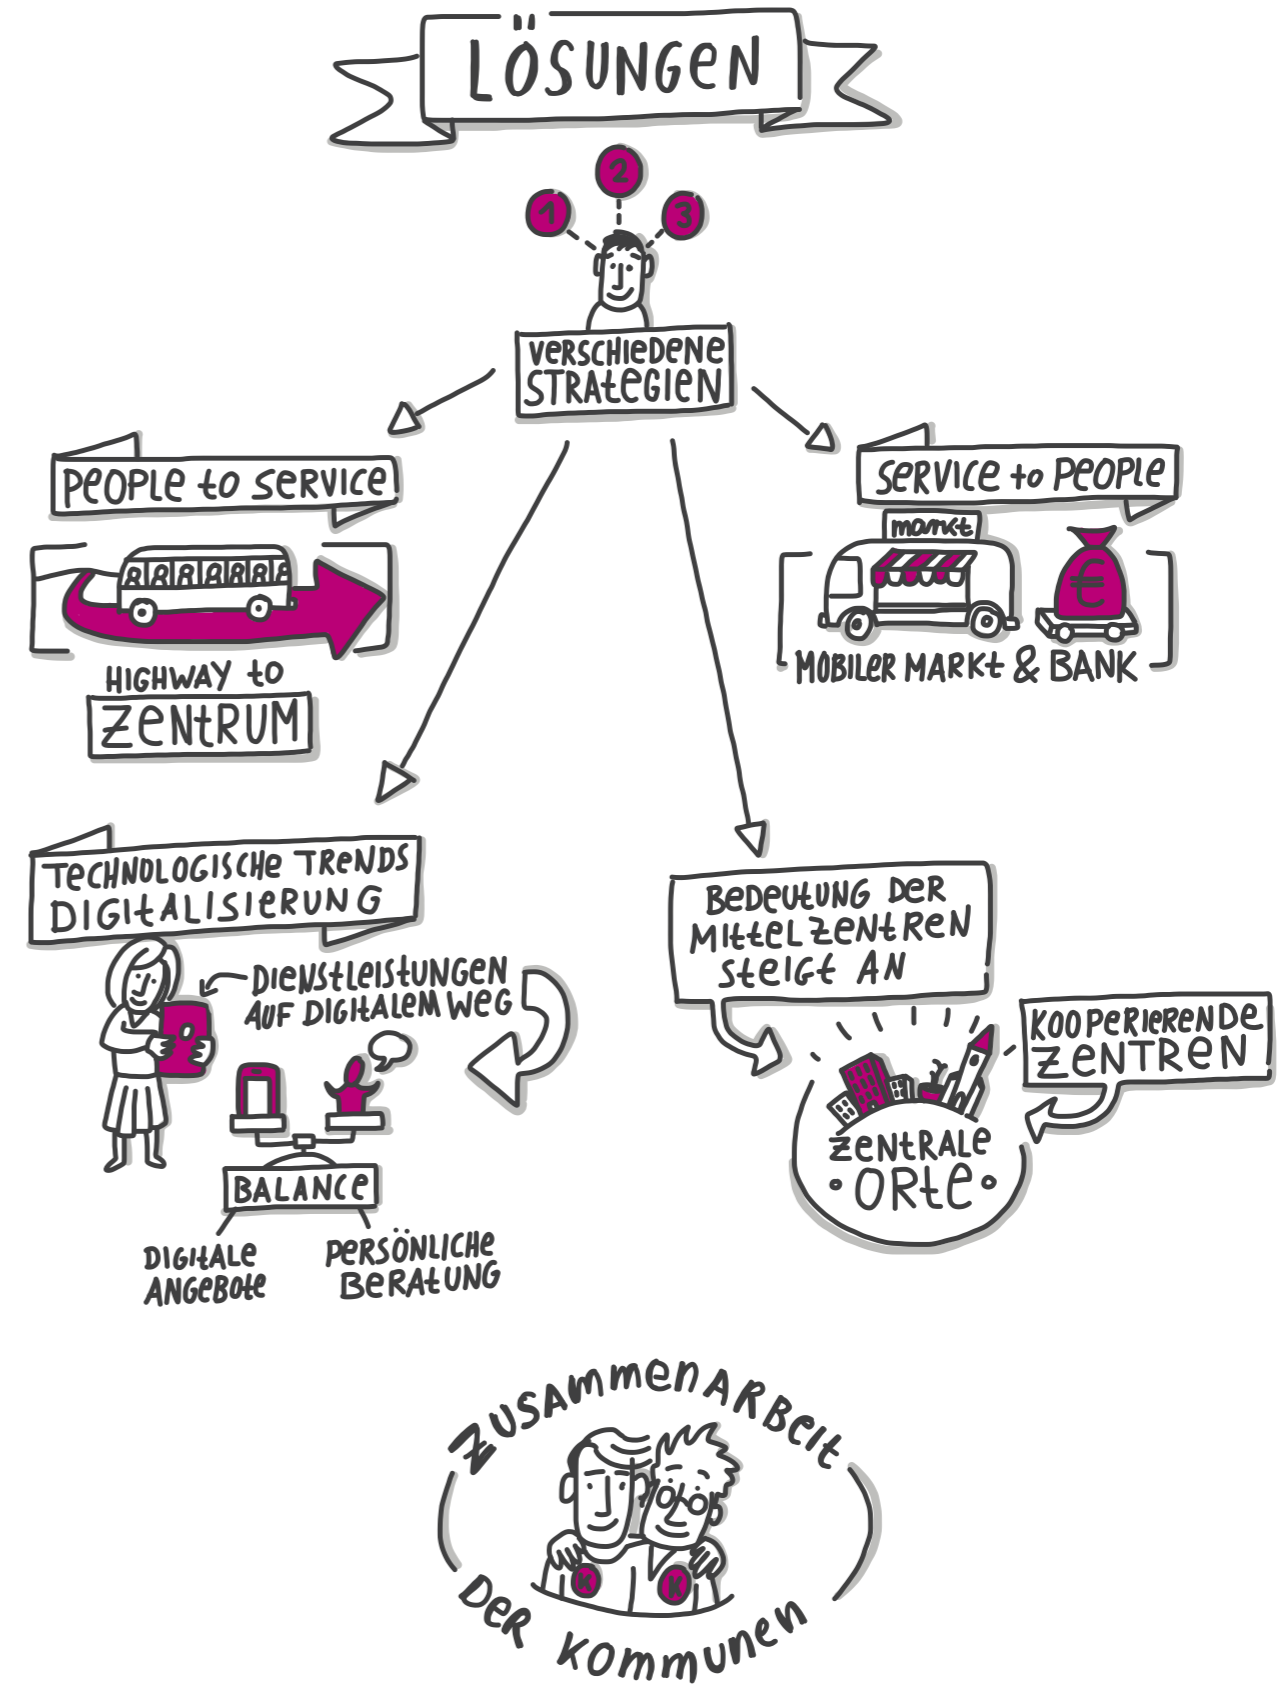 LÖSUNGEN
1
2
3
VERSCHIEDENE
STRATEGIEN
PEOPLE to SERVICE
HIGHWAY to
ZENTRUM
SERVICE to PEOPLE
markt
€
MOBILER MARKT & BANK
TECHNOLOGISCHE TRENDS
DIGITALISIERUNG
DIENSTLEISTUNGEN
AUF DIGITALEM WEG
BALANCE
DIGITALE
ANGEBOTE
PERSÖNLICHE
BERATUNG
BEDEUTUNG DER
MITTELZENTREN
STEIGT AN
KOOPERIERENDE
ZENTREN
ZENTRALE
• ORTE •
ZUSAMMENARBEIT
K
K
DER KOMMUNEN